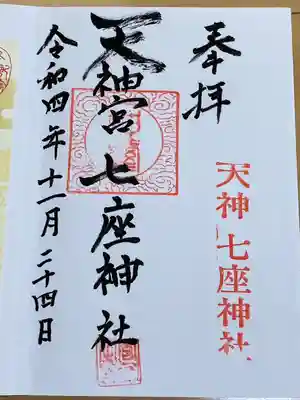 奉拝
天神七座神社
天神宮七座神社
令和四年十一月二十四日